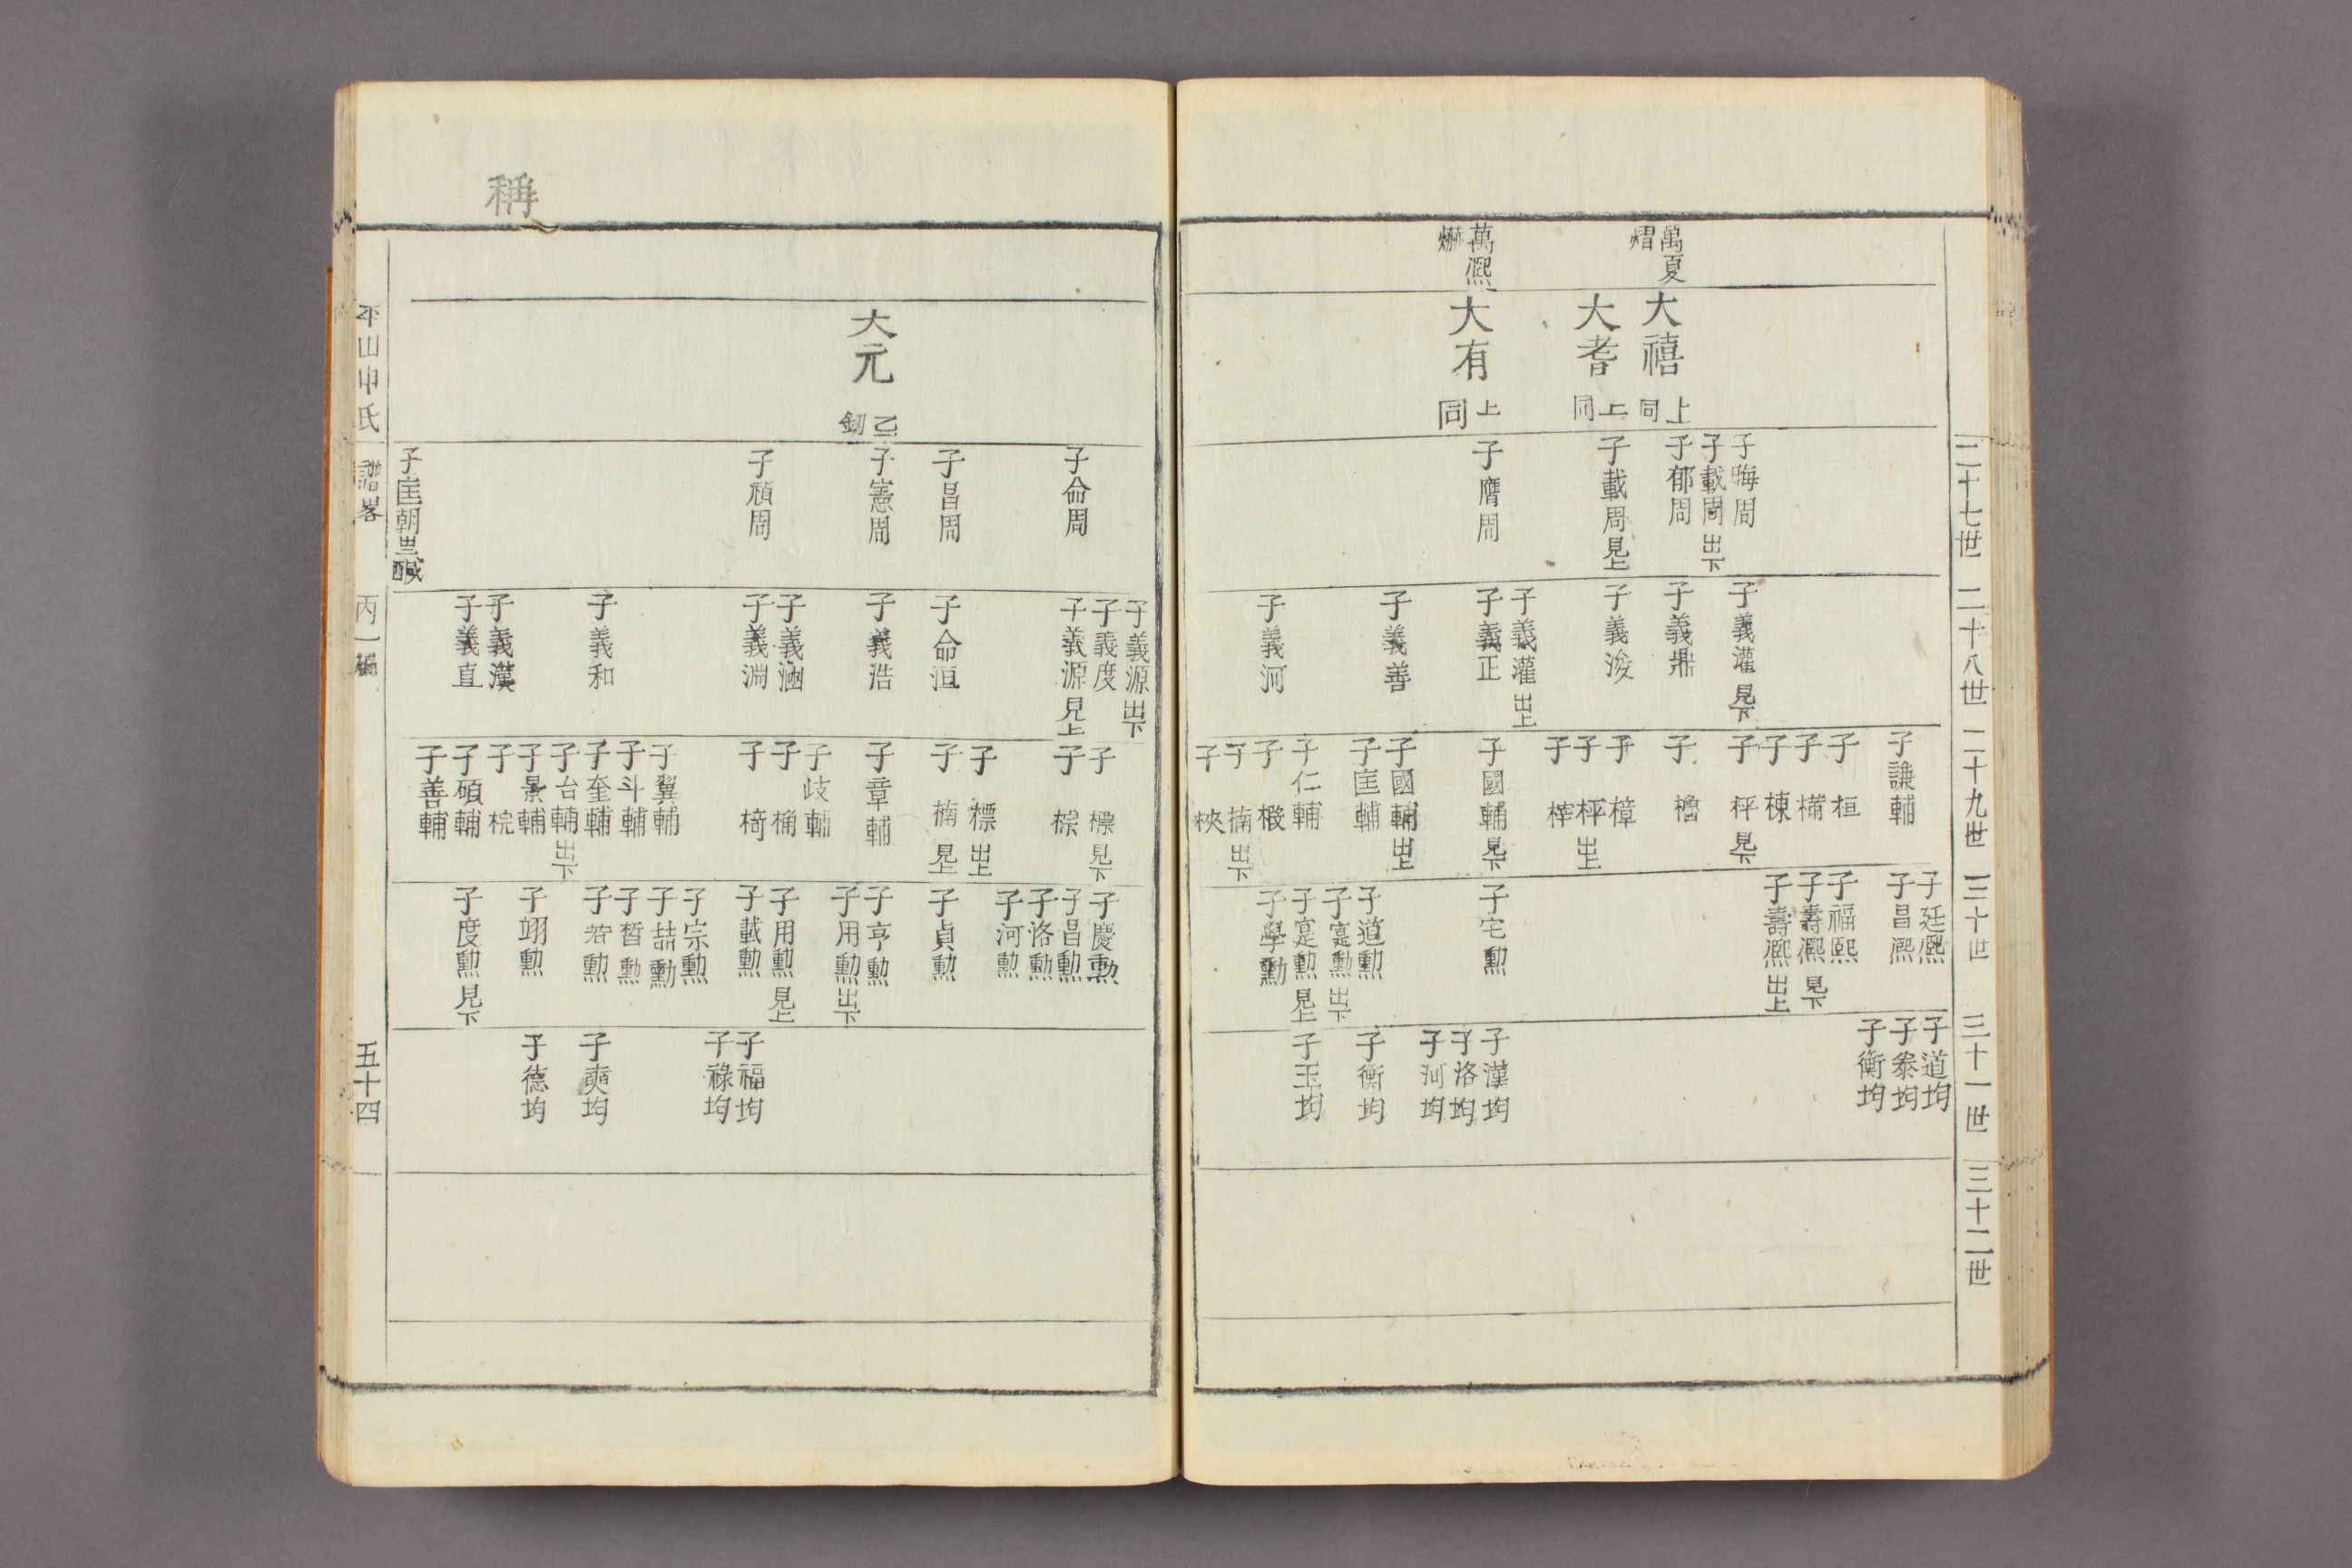 二十七世
二十八世
二十九世
三十世
三十一世
三十二世
萬夏
熠
萬熈
爀
大禧 上同
大耆 上同
大有 上同
子晦周
子載周 出下
子郁周
子載周 見上
子膺周
子義灌 見下
子義鼎
子義浚
子義灌 出上
子義正
子義善
子義河
子謙輔
子桓
子構
子棟
子枰 見下
子櫓
子樟
子枰 出上
子榟
子國輔 見下
子國輔 出上
子匡輔
子仁輔
子椴
子楠 出下
子梜
子廷熈
子昌熈
子福熈
子壽熈 見下
子壽熈 出上
子宅勳
子道勳
子寔勳 出下
子寔勳 見上
子學勳
子道均
子泰均
子衡均
子漢均
子洛均
子河均
子衡均
子玉均
稱
大元 乙釖
子命周
子昌周
子憲周
子禎周
子匡朝
子義源 出下
子義度
子義源 見上
子命洹
子義浩
子義涵
子義淵
子義和
子義漢
子義直
子標 見下
子棕
子標 出上
子楠 見上
子章輔
子歧輔
子桷
子椅
子翼輔
子斗輔
子奎輔
子台輔 出下
子景輔
子梡
子碩輔
子善輔
子慶勳
子昌勳
子洛勳
子河勳
子貞勳
子亨勳
子用勳 出下
子用勳 見上
子載勳
子宗勳
子喆勳
子晳勳
子若勳
子翊勳
子度勳 見下
子福均
子祿均
子奭均
子德均
平山申氏
譜畧
丙一編
五十四